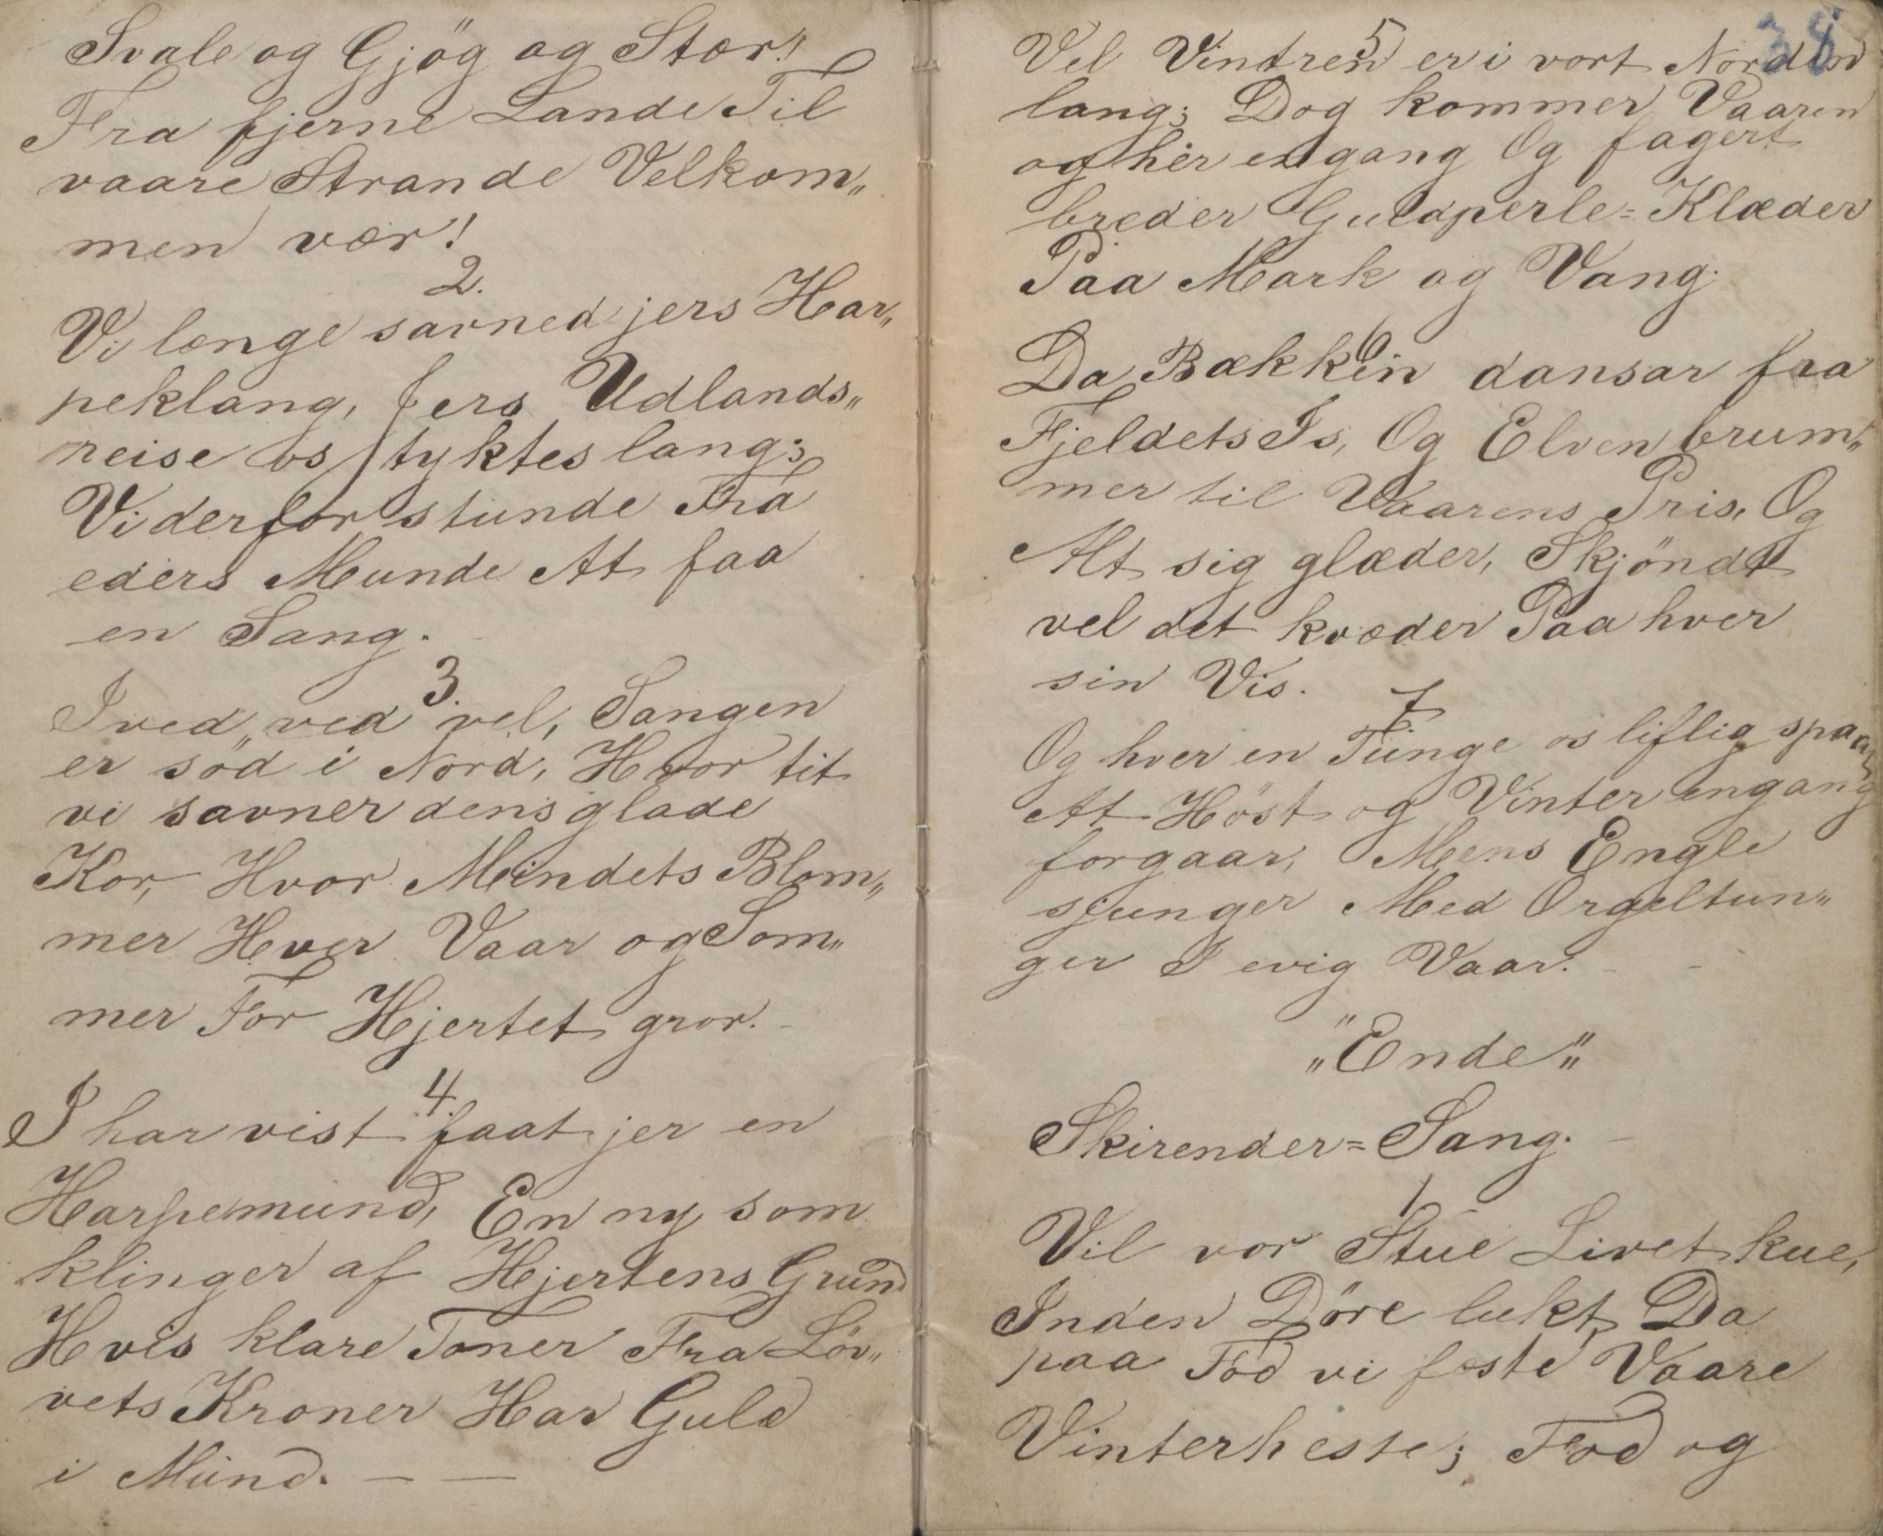 Svale og Gjög og Stær!
Fra fjerne Lande Til
vaare Strande Velkom„
men vær!
2.
Vi længe savned jers Har„
peklang, Jers Udlands„
reise os tyktes lang;
Vi derfor stunde Fra
eders Munde At faa
en Sang.
3.
I ved, ved vel, Sangen
er söd i Nord, Hvor tit
vi savner dens glade
Kor, Hvor Mindets Blom„
mer Hver Vaar og Som„
mer For Hjertet gror.
4.
I har vist faat jer en
Harpemund, En ny som
klinger af Hjertens Grund
Hvis klare Toner Fra Löv„
vets Kroner Har Guld
i Mund. — —
38
5
Vel Vintren er i vort Norden
lang; Dog kommer Vaaren
og her engang Og fagert
breder Guldperle=Klæder
Paa Mark og Vang.
6
Da Bækken dansar fra
Fjeldets Is, Og Elven brum„
mer til Vaarens Pris, Og
Alt sig glæder, Skjöndt
vel det kvæder Paa hver
sin Vis.
7
Og hver en Tunge os liflig spaar
At Höst og Vinter engang
forgaar, Mens Engle
sjunger Med Orgeltun„
ger I evig Vaar.
„Ende„
Skirender=Sang.
1
Vil vor Stue Livet kue,
Inden Döre lukt Da
paa Fod vi feste Vaare
Vinterheste; Fod og